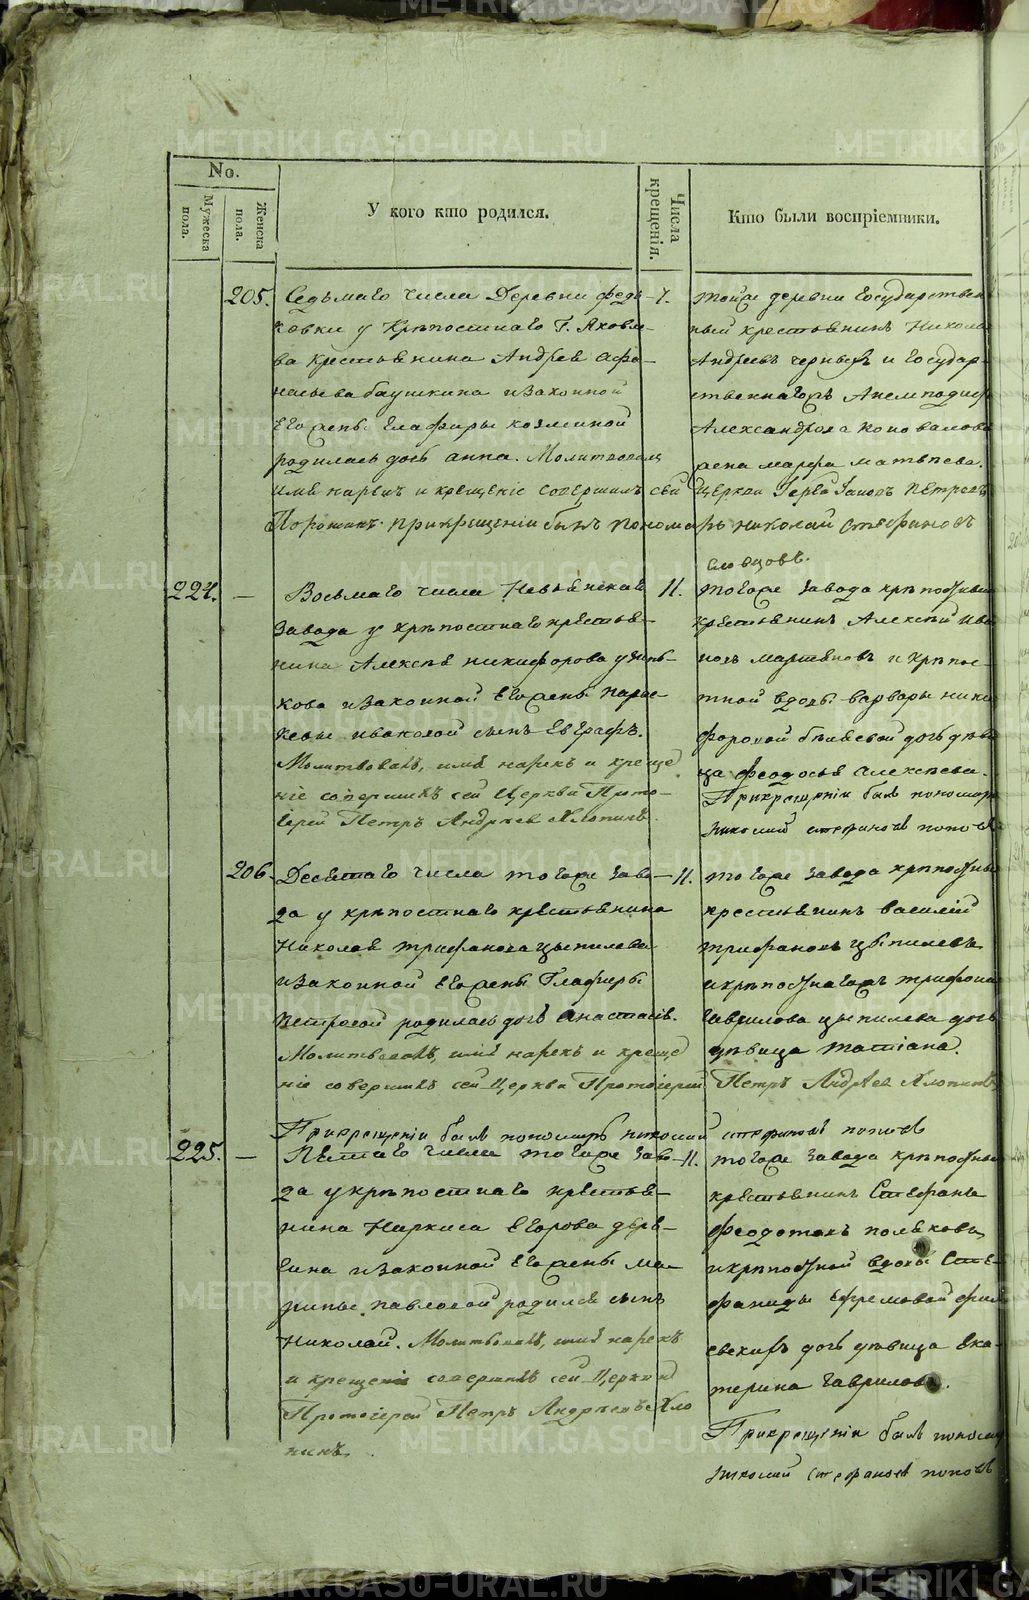 No.
Мужеска пола.
Женска пола.
У кого кто родился.
Числа крещенія.
Кто были воспріемники.
205.
Седьмаго числа Деревни Федь-
ковки у Крѣпостнаго Г. Яковле-
ва крестьянина Андрея Афо-
насьева баушкина изаконной
Его жены Глафиры козминой
родилась дочь анна. Молитвовалъ
имя нарекъ и крещеніе совершилъ сей
Порошинъ. прикрещеніи былъ пономарь николай стефановъ
7.
тойже деревни Государствен
ный крестьянинъ Никола
Андреевъ черныхъ и Государ-
ственнагожъ
Александрова коновалова
жена марфа матвѣева.
церкви Іерей Іаковъ Петровъ
словцовъ.
224. —
Восьмаго числа Невьянскаго
Завода у крѣпостнаго крестья-
нина Алексѣя никифорова
кова изаконной Его жены парас-
кевы ивановой сынъ Евграфъ.
Молитвовалъ, имя нарекъ и креще
ніе совершилъ сей Церкви Прото-
іерей Петръ Андреев Хлопинъ.
11.
тогоже завода крѣпостный
крестьянинъ Алексѣй ива
новъ мартяновъ и крѣпос-
тной вдовы варвары ники
форовой бѣляевой дочь дѣви
ца феодосья алексѣева.
Прикрещеніи былъ пономарь
николай стефановъ поповъ
206.
Десятаго числа тогоже заво-
да у крѣпостнаго крестьянина
Николая трифанова цыпилева
изаконной Его жены Глафиры
петровой родилась дочь Анастасія.
Молитвовалъ, имя нарекъ и креще
ніе совершилъ сей Церкви Протоіерей
Прикрещеніи былъ пономарь николай
11.
тогоже завода крѣпостный
крестьянинъ василій
трифановъ цыпилевъ
икрѣпостнагожъ трифона
Гаврилова цыпилева дочь
дѣвица татіана.
Петръ Андрѣев Хлопинъ
стефановъ поповъ
225. —
Пятаго числа тогоже заво-
да у крѣпостнаго крестья-
нина Наркиса Егорова дере-
гина изаконной Его жены ма-
рины павловой родился сынъ
Николай. Молитвовалъ, имя нарекъ
и крещеніе совершилъ сей Церкви
Протоіерей Петръ Андрѣевъ Хло
пинъ.
11.
тогоже завода крѣпостный
крестьянинъ Стефанъ
феодотовъ поляковъ
икрѣпостной вдовы Сте-
фаниды ефремовой
дочь дѣвица ека-
терина гаврилова.
Прикрещеніи былъ пономарь
николай стефановъ поповъ